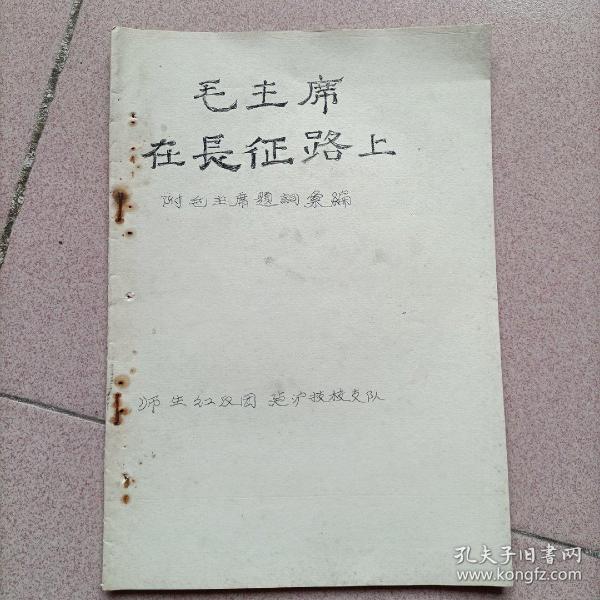 毛主席
在長征路上
附毛主席題詞彙編
师生红及团 驻沪技校支队
孔夫子旧書网
www.kongfz.com